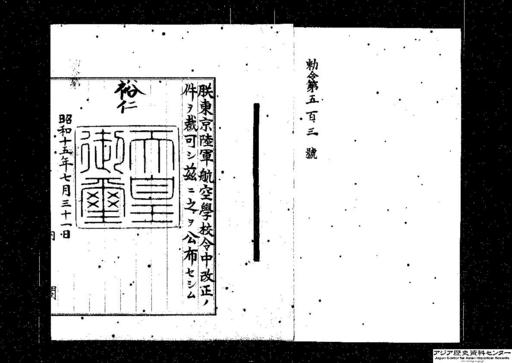 勅令第五百三號
朕東京陸軍航空學校令中改正ノ
件ヲ裁可シ茲ニ之ヲ公布セシム
裕仁
天皇
御璽
昭和十五年七月三十一日
内閣
アジア歴史資料センター
Japan Center for Asian Historical Records